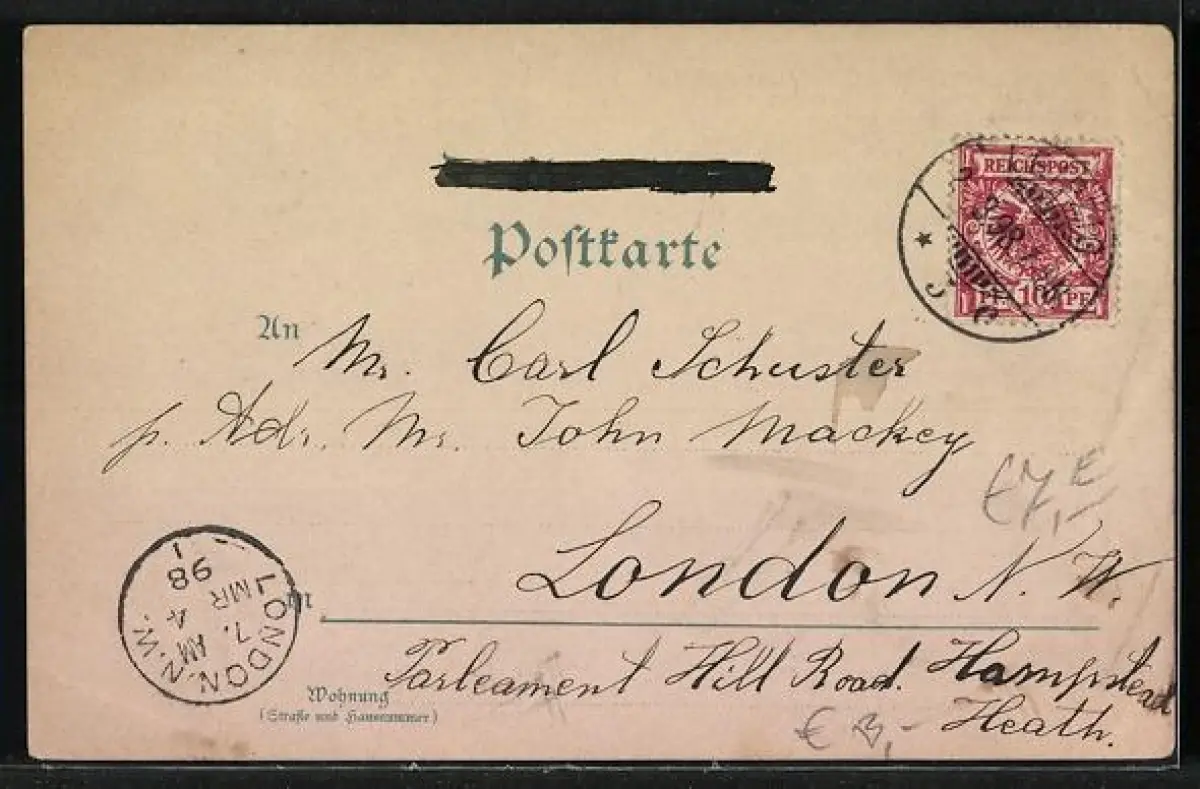 REICHSPOST
10 PF
Postkarte
An Mr. Carl Schuster
p. Adr. Mr. John Mackey
London N. W.
Parleament Hill Road. Hampstead
Heath.
Wohnung
(Straße und Hausnummer)
LONDON. N.W.
7. AM
MR 4
98
€ 7,-
€